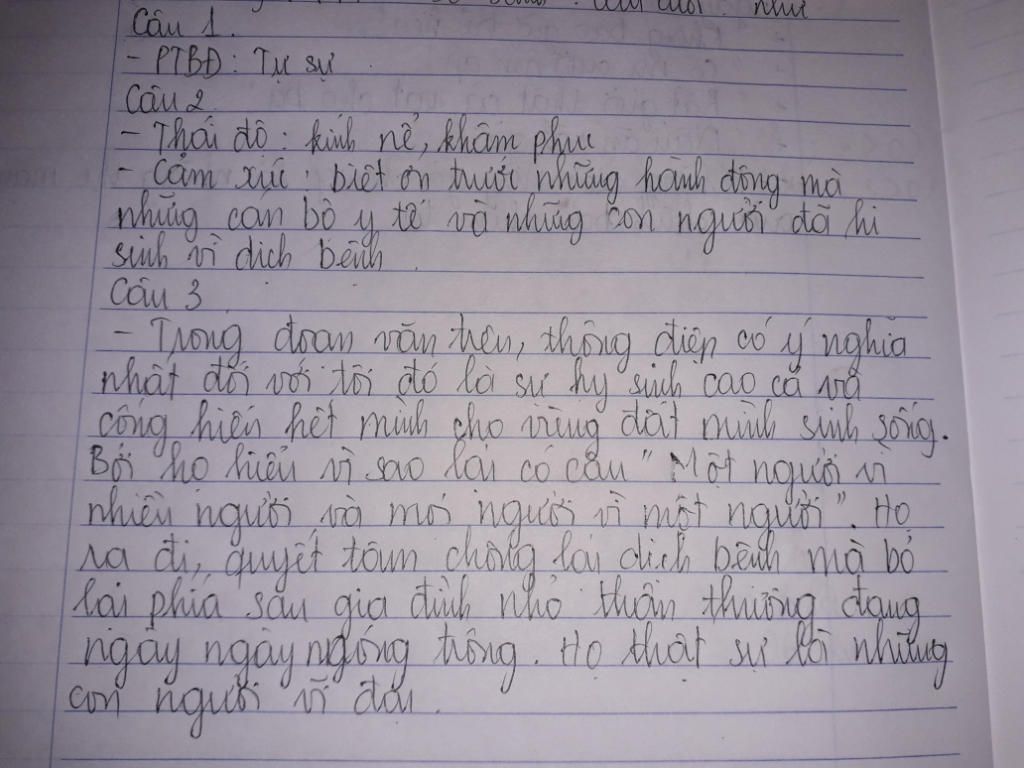 như
Câu 1.
- PTBĐ: Tự sự
Câu 2
- Thái độ: kính nể, khâm phục
- Cảm xúc: biết ơn trước những hành động mà
những cán bộ y tế và những con người đã hi
sinh vì dịch bệnh.
Câu 3
- Trong đoạn văn trên, thông điệp có ý nghĩa
nhất đối với tôi đó là sự hy sinh cao cả và
cống hiến hết mình cho vùng đất mình sinh sống.
Bởi họ hiểu vì sao lại có câu "Một người vì
nhiều người và mọi người vì một người". Họ
ra đi, quyết tâm chống lại dịch bệnh mà bỏ
lại phía sau gia đình nhỏ thân thương đang
ngày ngày ngóng trông. Họ thật sự là những
con người vĩ đại.